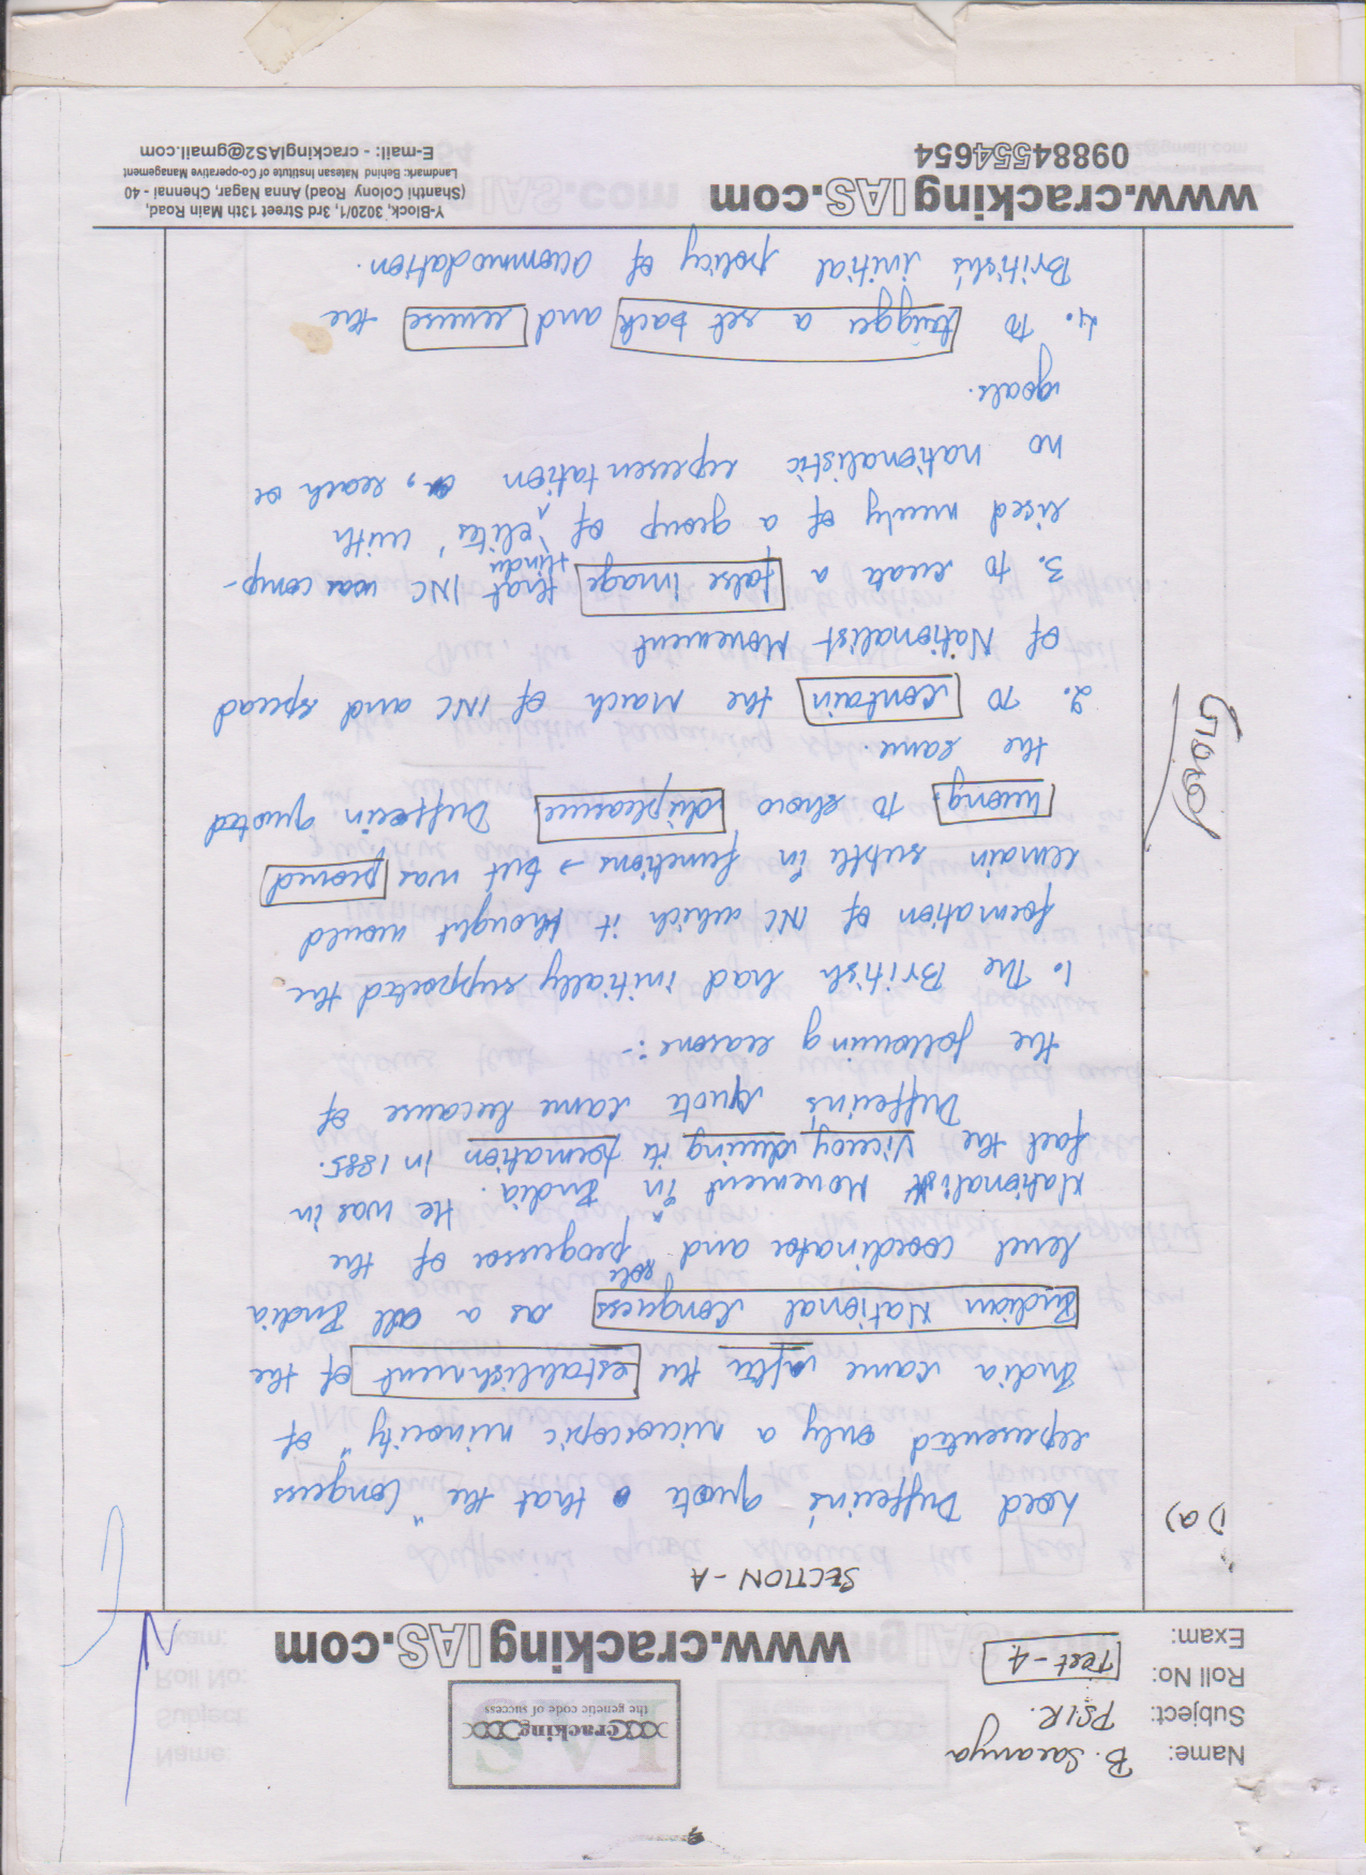 Name: B. Saranya
Subject: PSIR.
Roll No: Test-4
Exam:
cracking
the genetic code of success
www.crackingIAS.com
SECTION-A
1) a)
Lord Dufferin's quote that the "Congress
represented only a microscopic minority" of
India came after the establishment of the
Indian National Congress as a all India
level coordinator and sole progressor of the
Nationalist Movement in India. He was in
fact the Viceroy during its formation in 1885.
Dufferin's quote came because of
the following reasons:-
1. The British had initially supported the
formation of INC which it thought would
remain subtle in functions → but was proved
wrong. To show displeasure, Dufferin quoted
the same.
Good
2. To contain the March of INC and spread
of Nationalist Movement
3. To create a false image that INC was comp-
rised merely of a group of Hindu 'elites' with
no nationalistic representation, reach or
goals.
4. To trigger a set back and reverse the
British's initial policy of accommodation.
www.crackingIAS.com
09884554654
Y-Block, 3020/1, 3rd Street 13th Main Road,
(Shanthi Colony Road) Anna Nagar, Chennai - 40
Landmark: Behind Natesan Institute of Co-operative Management
E-mail: - crackingIAS2@gmail.com